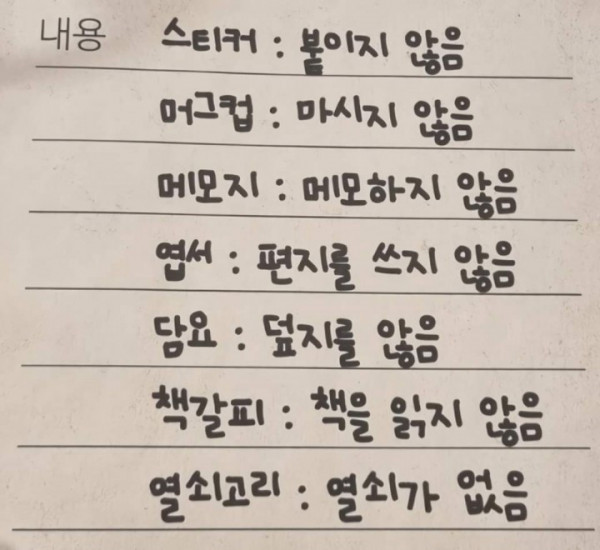 내용 스티커 : 붙이지 않음
머그컵 : 마시지 않음
메모지 : 메모하지 않음
엽서 : 편지를 쓰지 않음
담요 : 덮지를 않음
책갈피 : 책을 읽지 않음
열쇠고리 : 열쇠가 없음